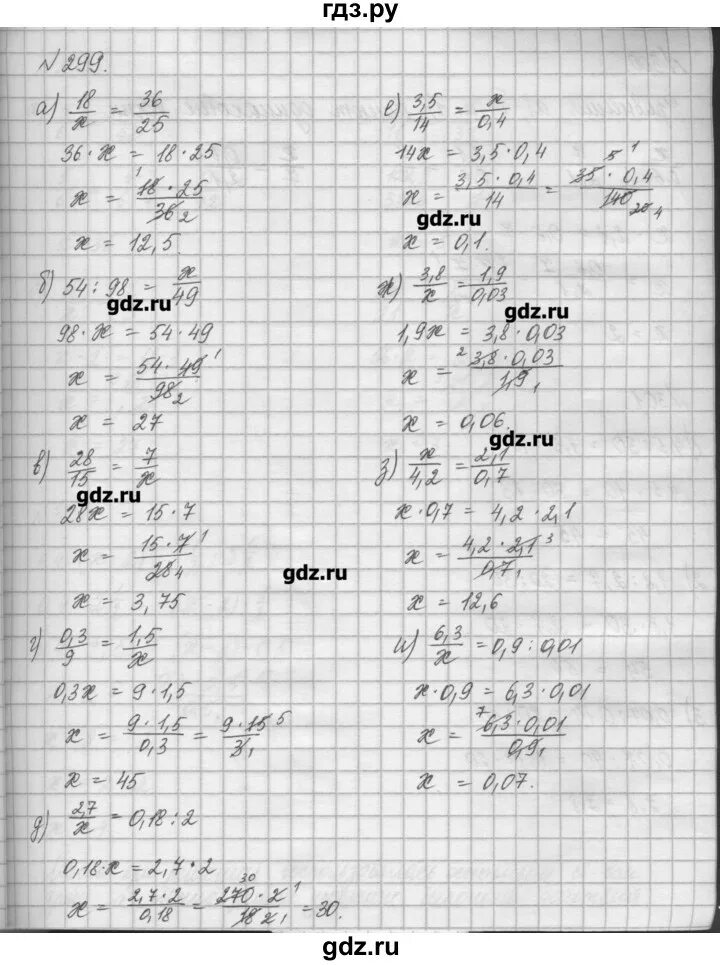 гдз.ру
№ 299.
а) 18/x = 36/25
36 · x = 18 · 25
x = 18 · 25 / 36 1 2
x = 12,5.
б) 54 : 98 = x/49
gdz.ru
98 · x = 54 · 49
x = 54 · 49 / 98 1 2
x = 27
в) 28/15 = 7/x
gdz.ru
28x = 15 · 7
x = 15 · 7 / 28 1 4
x = 3,75
г) 0,3/9 = 1,5/x
0,3x = 9 · 1,5
x = 9 · 1,5 / 0,3 = 9 · 15 / 3 5 1
x = 45
д) 2,7/x = 0,18 : 2
0,18 · x = 2,7 · 2
x = 2,7 · 2 / 0,18 = 270 · 2 / 18 · 2 30 1 1 = 30.
е) 3,5/14 = x/0,4
14x = 3,5 · 0,4
x = 3,5 · 0,4 / 14 = 35 · 0,4 / 140 5 1 20 4
gdz.ru
x = 0,1.
ж) 3,8/x = 1,9/0,03
gdz.ru
1,9x = 3,8 · 0,03
x = 3,8 · 0,03 / 1,9 2 1
x = 0,06.
gdz.ru
з) x/4,2 = 2,1/0,7
x · 0,7 = 4,2 · 2,1
x = 4,2 · 2,1 / 0,7 3 1
gdz.ru
x = 12,6
и) 6,3/x = 0,9 : 0,01
x · 0,9 = 6,3 · 0,01
x = 6,3 · 0,01 / 0,9 7 1
x = 0,07.
gdz.ru